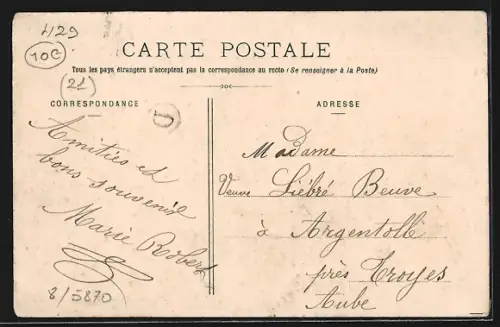 429
10C
CARTE POSTALE
Tous les pays étrangers n'acceptent pas la correspondance au recto (Se renseigner à la Poste)
(21)
CORRESPONDANCE
D
Amitiés et
bons souvenir
Marie Robert
8/5870
ADRESSE
Madame
Veuve Liébré Beuve
à Argentolle
près Troyes
Aube